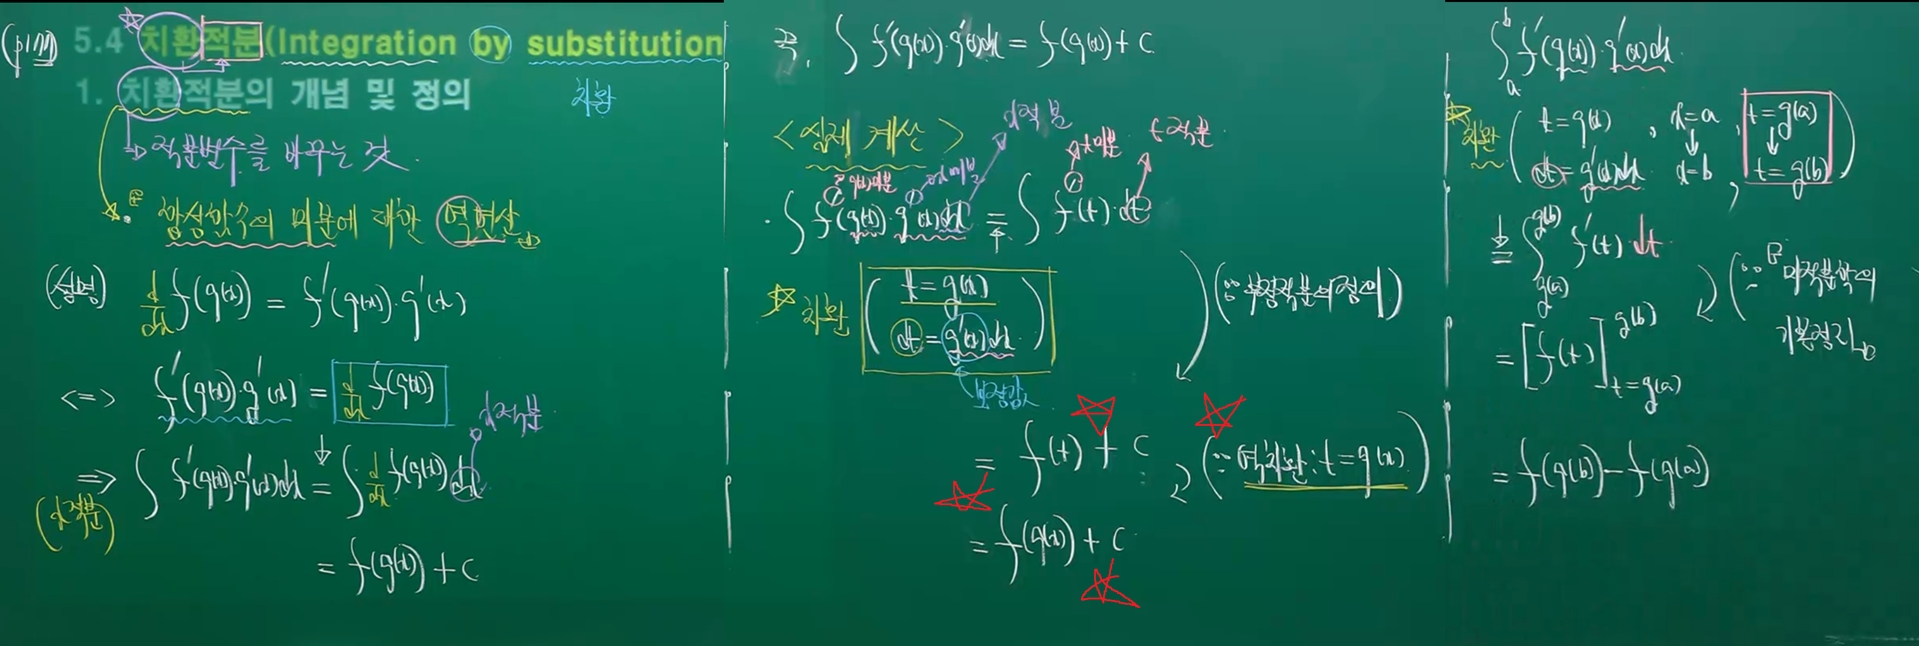 (p177) 5.4 치환적분(Integration by substitution
치환
1. 치환적분의 개념 및 정의
⇒ 적분변수를 바꾸는 것.
합성함수의 미분에 대한 역연산
(설명) d/dx f(g(x)) = f'(g(x))·g'(x)
<=> f'(g(x))·g'(x) = d/dx f(g(x))
x적분
⇒ ∫ f'(g(x))·g'(x)dx = ∫ d/dx f(g(x)) dx
(x적분)
= f(g(x)) + C
즉, ∫ f'(g(x))·g'(x)dx = f(g(x)) + C
<실제 계산>
x적분
g(x)미분 x미분 t미분 t적분
· ∫ f'(g(x))·g'(x)dx = ∫ f'(t)·dt
치환 ( t = g(x)
dt = g'(x)dx )
보정값
(∵ 부정적분의 정의)
= f(t) + C
(∵ 역치환: t = g(x))
= f(g(x)) + C
∫_a^b f'(g(x))·g'(x)dx
치환 ( t = g(x), x=a, t = g(a)
dt = g'(x)dx x=b, t = g(b) )
= ∫_{g(a)}^{g(b)} f'(t) dt
(∵ 미적분학의
기본정리)
= [f(t)]_{t=g(a)}^{g(b)}
= f(g(b)) − f(g(a))